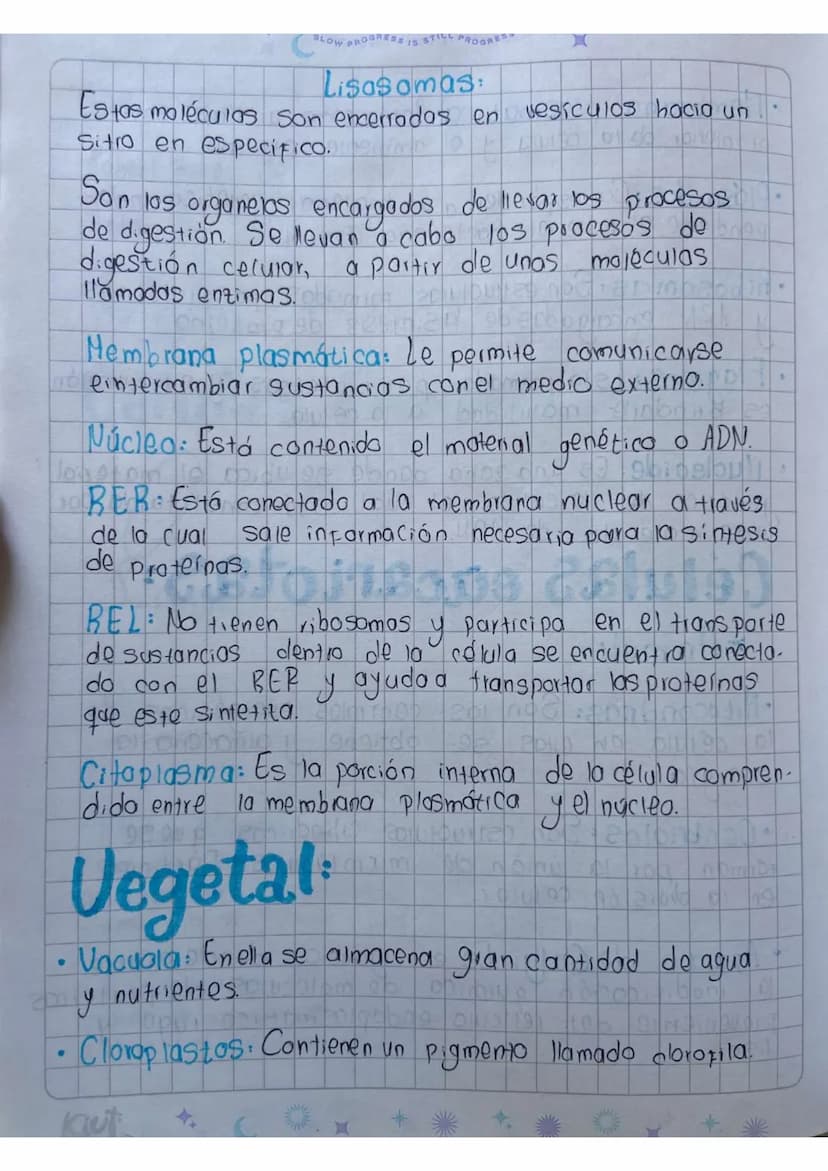 SLOW PROGRESS IS STILL PROGRESS
Lisosomas:
Estas moléculas son encerradas en vesículas hacia un
sitio en específico.
Son los organelos encargados de llevar los procesos
de digestión. Se llevan a cabo los procesos de
digestión celular, a partir de unas moléculas
llamadas enzimas.
Membrana plasmática: Le permite comunicarse
e intercambiar sustancias con el medio externo.
Núcleo: Está contenido el material genético o ADN.
RER: Está conectado a la membrana nuclear a través
de la cual sale información necesaria para la síntesis
de proteínas.
REL: No tienen ribosomas y participa en el transporte
de sustancias dentro de la célula se encuentra conecta-
do con el RER y ayuda a transportar las proteínas
que este sintetiza.
Citoplasma: Es la porción interna de la célula compren-
dida entre la membrana plasmática y el núcleo.
Vegetal:
• Vacuola: En ella se almacena gran cantidad de agua
y nutrientes.
• Cloroplastos: Contienen un pigmento llamado clorofila.